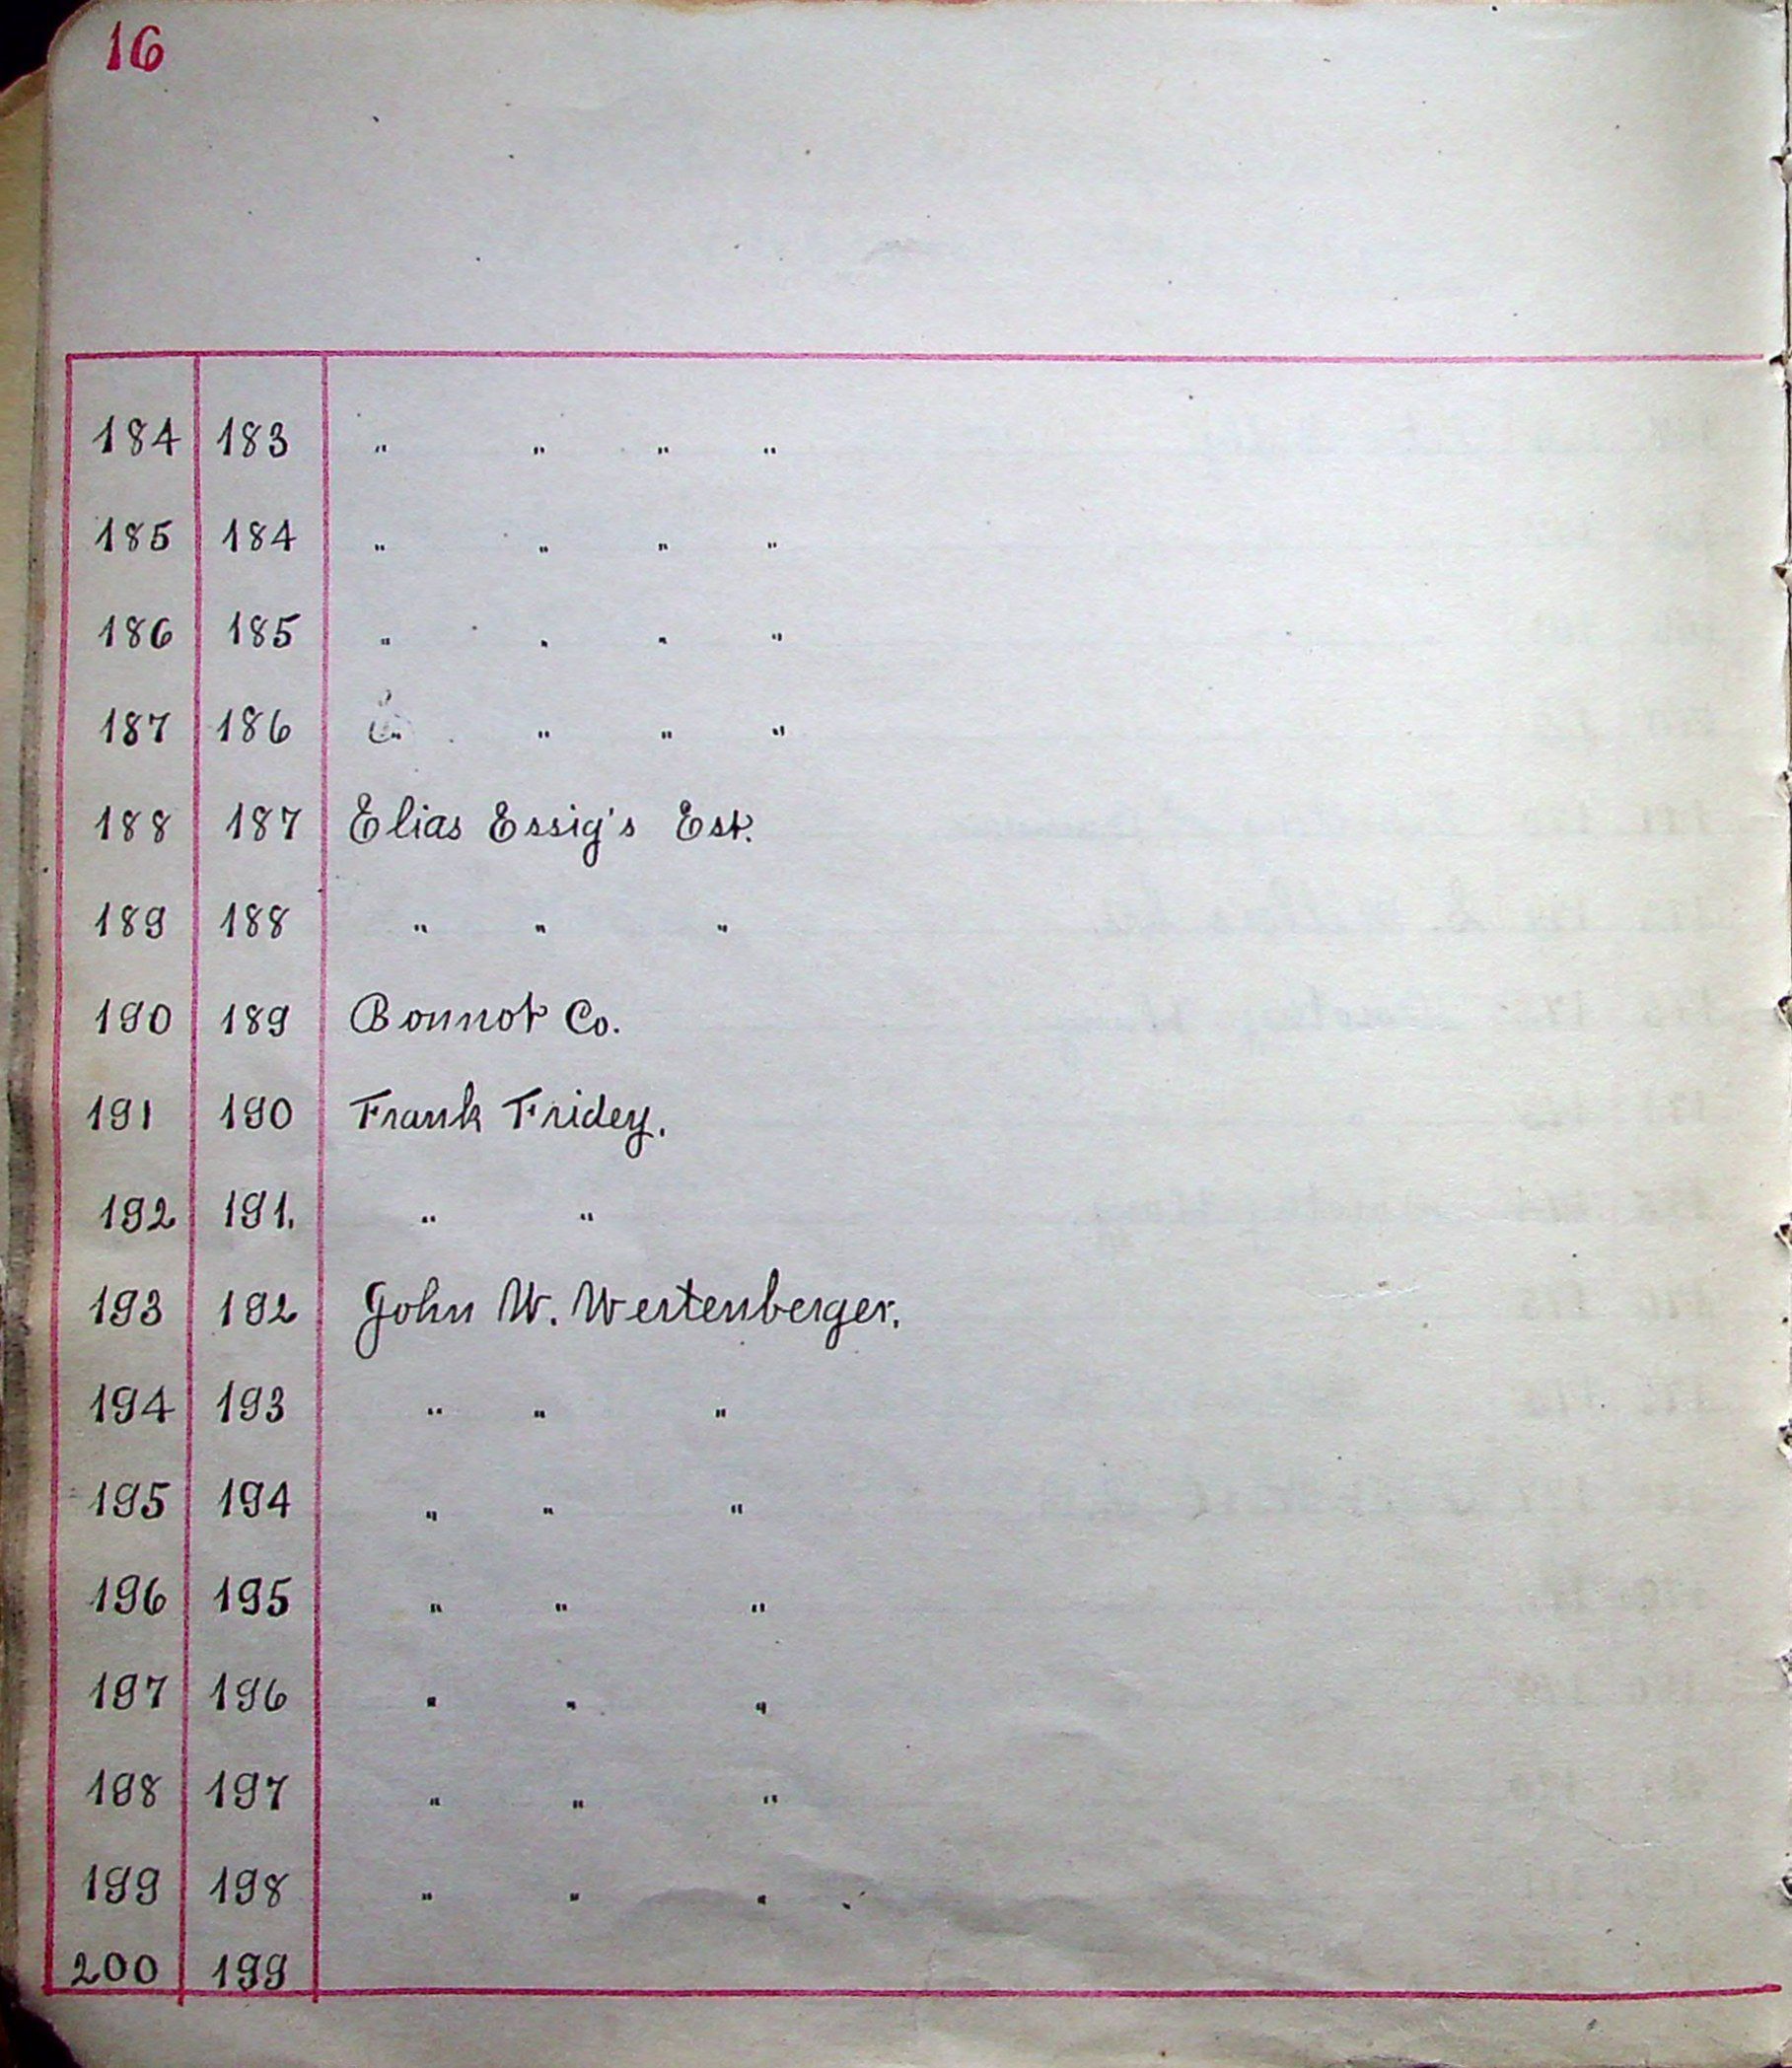 16
184 183 " " " "
185 184 " " " "
186 185 " " " "
187 186 " " " "
188 187 Elias Essig's Est.
189 188 " " "
190 189 Bonnot Co.
191 190 Frank Fridey.
192 191. " "
193 192 John W. Wertenberger.
194 193 " " "
195 194 " " "
196 195 " " "
197 196 " " "
198 197 " " "
199 198 " " "
200 199